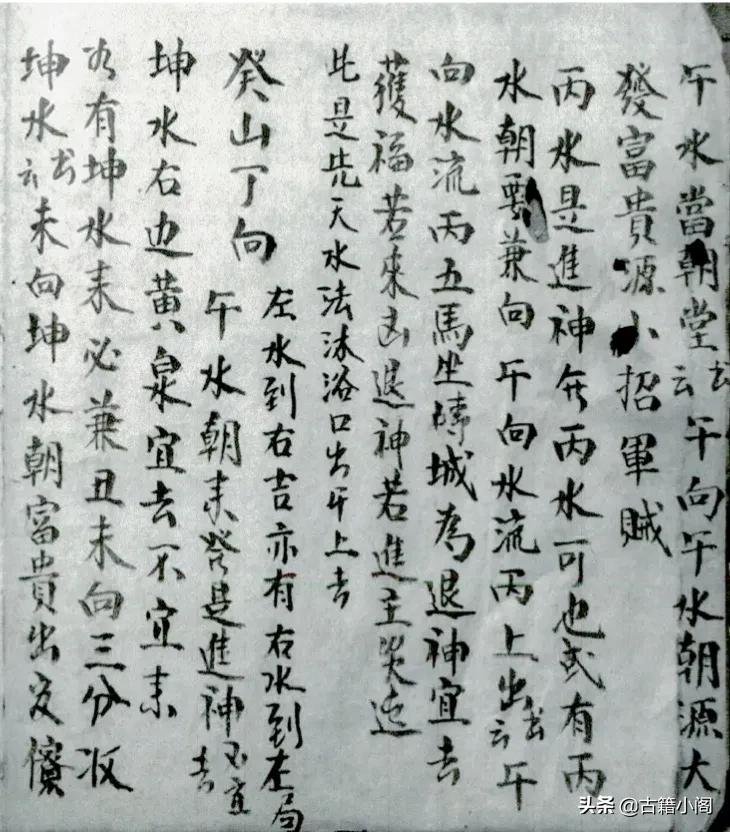 午水當朝堂書云午向午水朝源大
發富貴源小招軍賊
丙水是進神午丙水可也或有丙
水朝要兼向午向水流丙上出書云午
向水流丙五馬坐磚城為退神宜去
獲福若來凶退神若進主災迍
此是先天水法沐浴口出午上去
癸山丁向
左水到右吉亦有右水到左局
午水朝来癸是進神不宜去
坤水右边黄泉宜去不宜来
若有坤水来必兼丑未向三分收
坤水書云未向坤水朝富貴出
头条 @古籍小阁